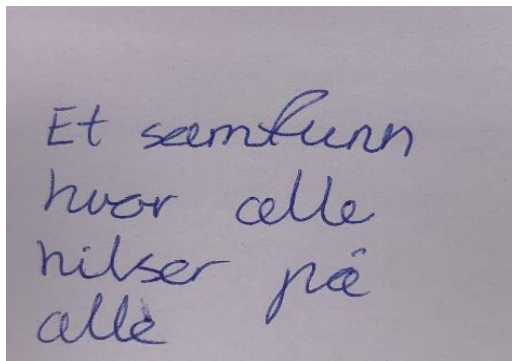 Et samfunn
hvor alle
hilser på
alle